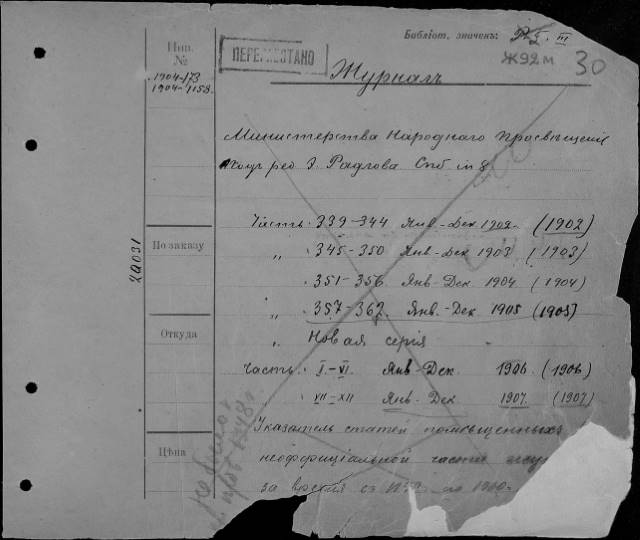 Библіот. значенъ: III
Ж92м 30
Инв.
№
1904-173
1904-1158.
ПЕРЕМѢСТАНО
Журналъ
Министерства Народнаго Просвѣщенія
ред Э. Радлова Спб in 8
Часть 339-344 Янв-Дек 1902 (1902)
„ 345-350 Янв-Дек 1903 (1903)
351-356 Янв-Дек 1904 (1904)
„ 357-362 Янв.-Дек 1905 (1905)
„ Новая серія
Часть I.-VI. Янв-Дек. 1906. (1906)
VII-XII Янв-Дек 1907. (1907)
Указатель статей помѣщенныхъ
неоффиціальной части
за время съ по 1900.
По заказу
Откуда
Цѣна
2Q031